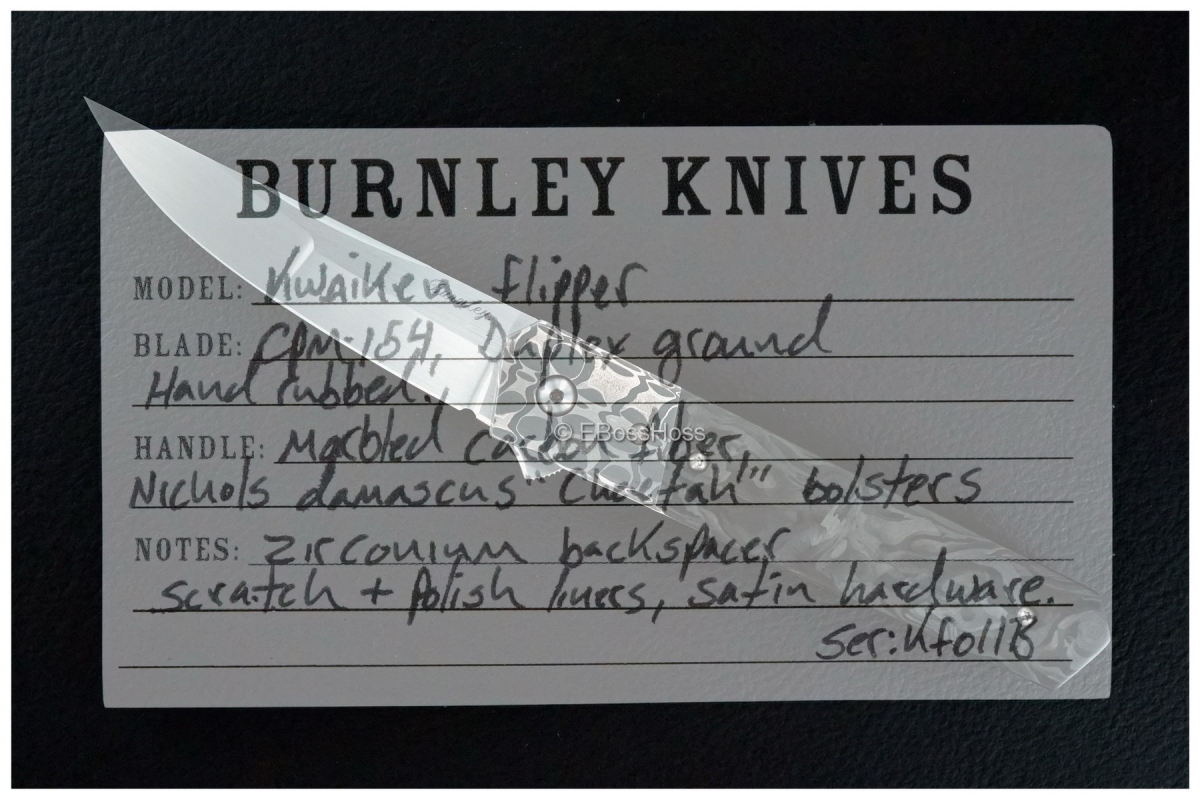 BURNLEY KNIVES
MODEL: Kwaiken flipper
BLADE: CPM-154, Duplex ground
Hand rubbed.
HANDLE: Marbled carbon fiber,
© EBossHoss
Nichols damascus "Cheetah" bolsters
NOTES: Zirconium backspacer
scratch + polish liners, satin hardware.
Ser:Kf011B
Burnley